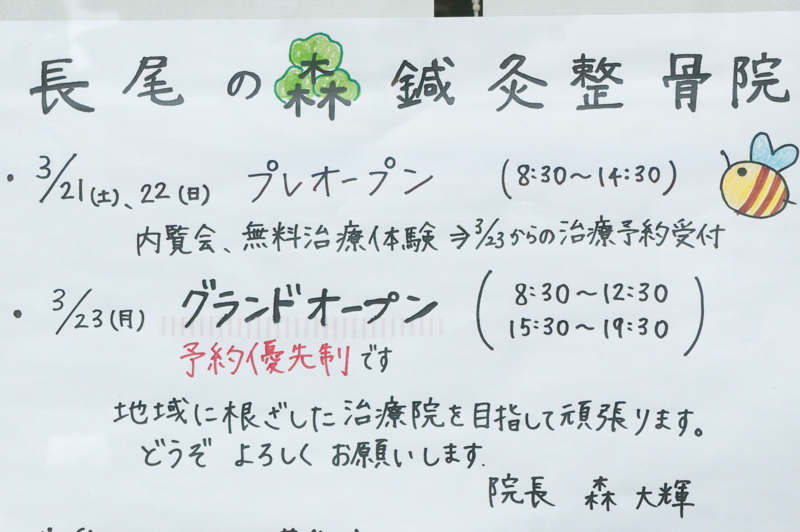 長尾の森鍼灸整骨院
・3/21(土)、22(日) プレオープン (8:30〜14:30)
内覧会、無料治療体験 ⇒ 3/23からの治療予約受付
・3/23(月) グランドオープン (8:30〜12:30
15:30〜19:30)
予約優先制です
地域に根ざした治療院を目指して頑張ります。
どうぞ よろしく お願いします.
院長 森 大輝